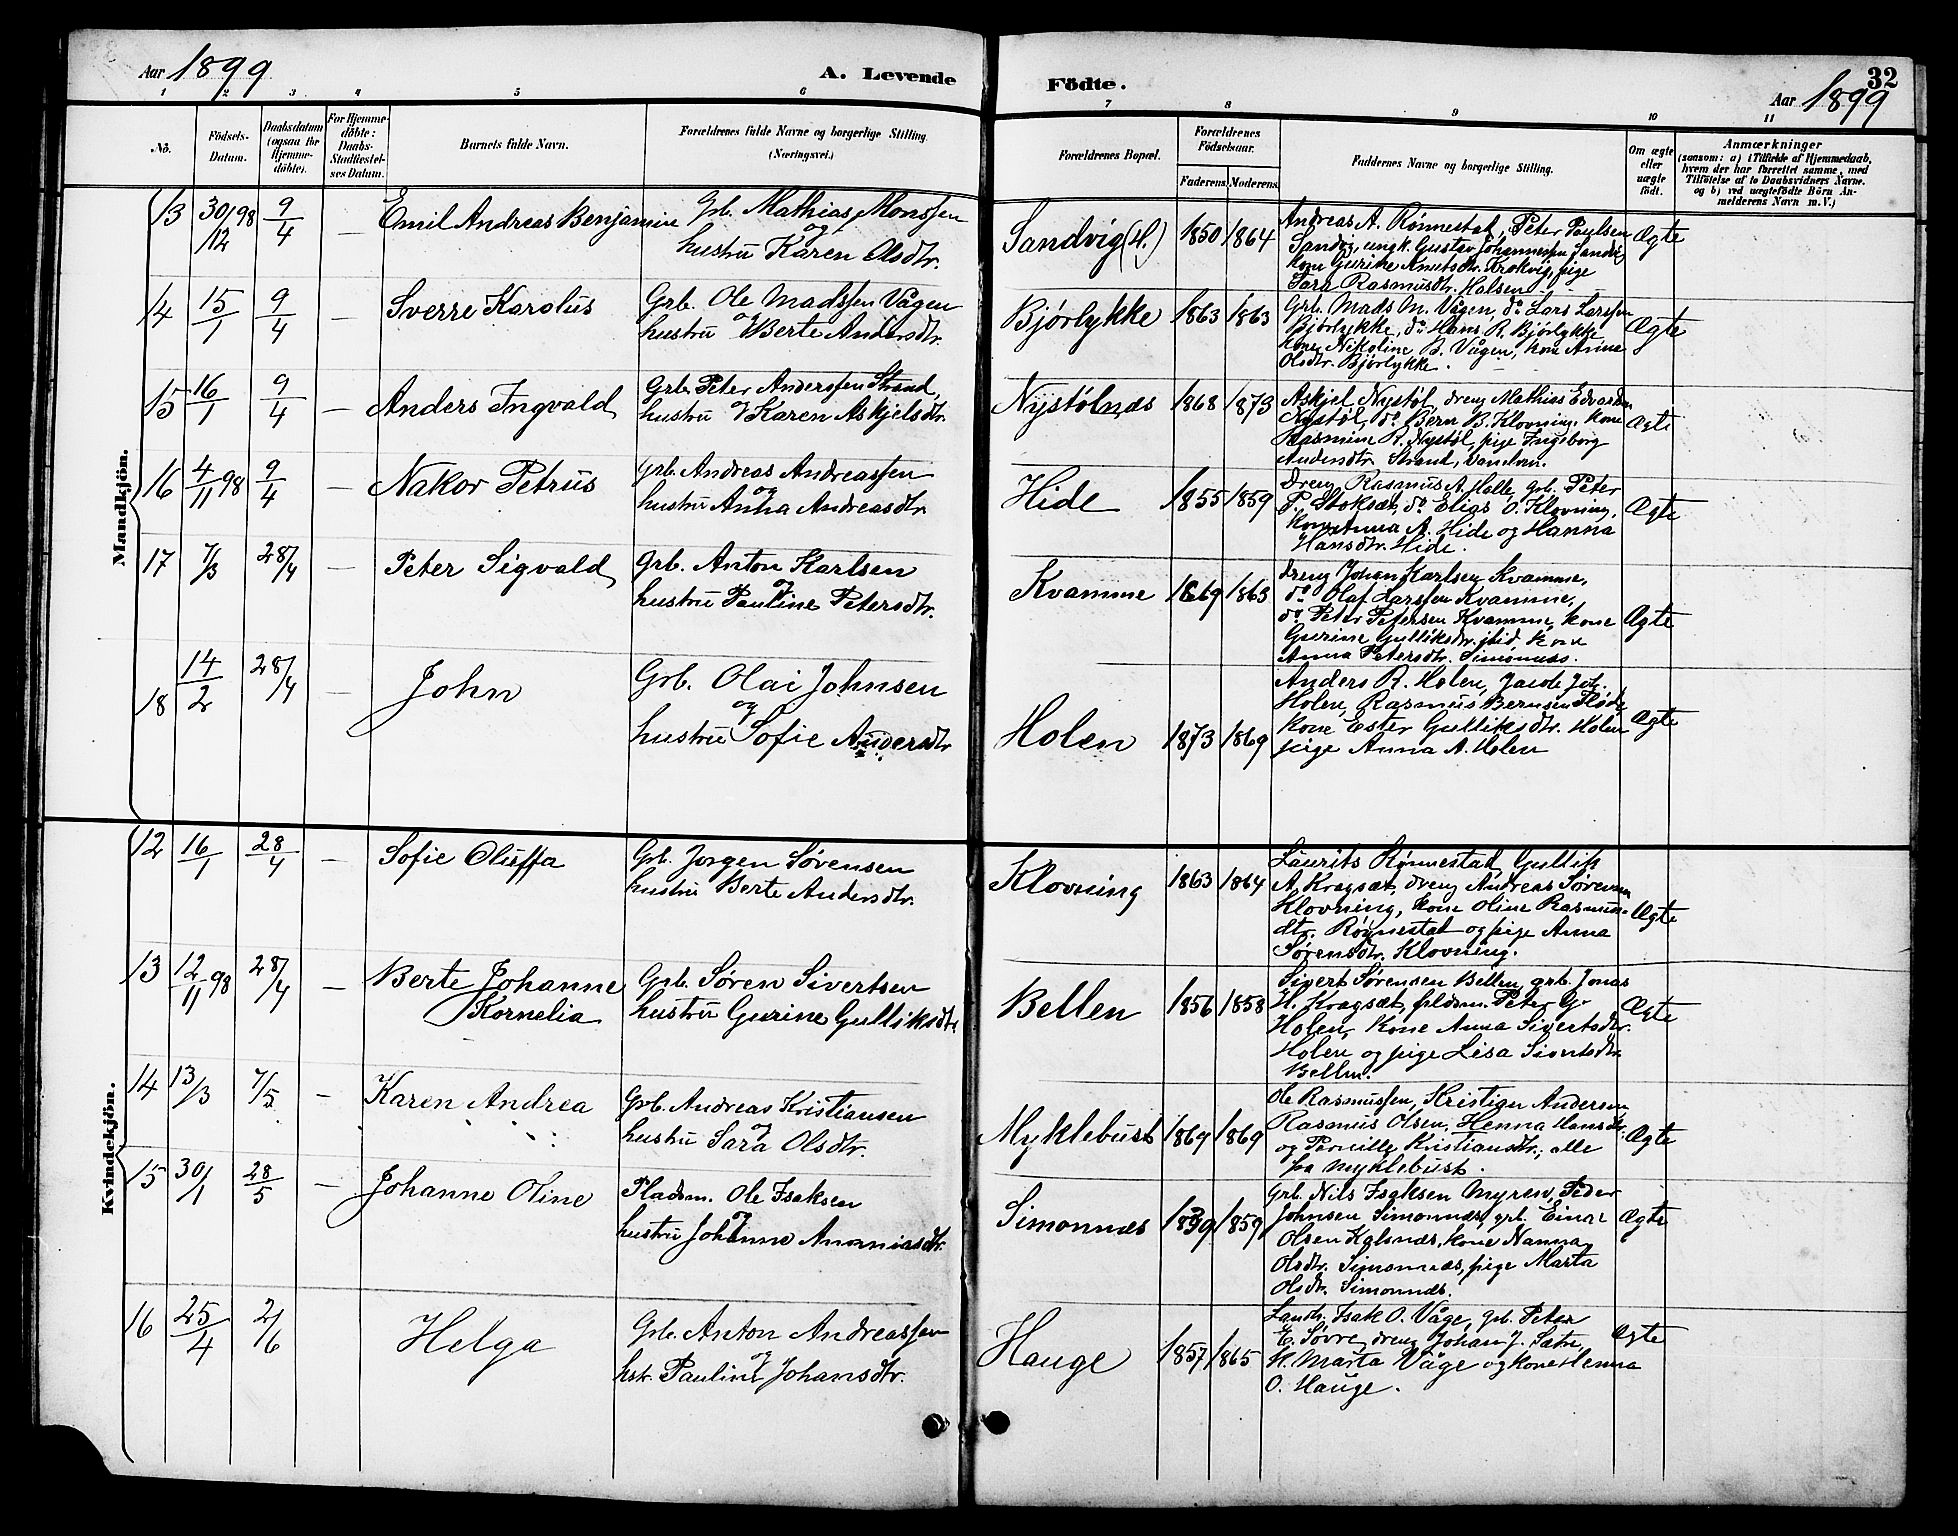 Aar 1899
A. Levende
Födte.
32
Aar 1899
1 2 3 4 5 6 7 8 9 10 11
No.
Födsels-
Datum.
Daabsdatum
(ogsaa for
Hjemme-
döbte).
For Hjemme-
döbte:
Daabs-
Stadfæstel-
ses Datum.
Barnets fulde Navn.
Forældrenes fulde Navne og borgerlige Stilling.
(Næringsvei.)
Forældrenes Bopæl.
Forældrenes
Födselsaar.
Faderens. Moderens.
Faddernes Navne og borgerlige Stilling.
Om ægte
eller
uægte
födt.
Anmærkninger
(saasom: a) i Tilfælde af Hjemmedaab,
hvem der har forrettet samme, med
Tilföielse af to Daabsvidners Navne.
og b) ved uægtefödte Börn An-
melderens Navn m.V.)
Mandkjön.
13 30/12 98 9/4 — Emil Andreas Benjamin Grb. Mathias Monssen
og
hustru Karen Olsdtr.
Sandvig (H.) 1850 1864 Andreas A. Rønnestad, Peter Paulsen
Sandvig, ungk. Gustav Johannessen Sandvig
kone Gurine Knutsdtr. Krokvig, pige
Sara Rasmusdtr. Halsen
Ægte
14 15/1 9/4 — Sverre Karolus Grb. Ole Madssen Vågen
og
hustru Berte Andersdtr.
Bjørlykke 1863 1863 Grb. Mads M. Vågen, do Lars Larssen
Bjørlykke, do Hans R. Bjørlykke,
kone Nikoline B. Vågen, kone Anna
Olsdtr. Bjørlykke.
Ægte
15 16/1 9/4 — Anders Ingvald Grb. Peter Anderssen Strand,
hustru og Karen Askjelsdtr.
Nystølnæs 1868 1873 Askjel Nystøl, dreng Mathias Edvardsen
Nystøl, do Bern B. Klovning, kone
Rasmine R. Nystøl, pige Ingeborg
Andersdtr. Strand,
Ægte
16 4/11 98 9/4 — Nakor Petrus Grb. Andreas Andreassen
og
hustru Anna Andreasdtr.
Hide 1855 1859 Dreng Rasmus A. Halle, grb. Peter
P. Stoksæt, do Elias O. Klovning,
kone Anna A. Hide og Hanna
Hansdtr. Hide.
Ægte
17 7/3 28/4 — Peter Sigvald Grb. Anton Karlsen
og
hustru Pauline Petersdtr.
Kvamme 1869 1863 dreng Johan Karlsen Kvamme,
do Olaf Larssen Kvamme,
do Peter Petersen Kvamme, kone
Gurine Gulliksdtr. ibid. kone
Anna Petersdtr. Simonnæs.
Ægte
18 14/2 28/4 — John Grb. Olai Johnsen
og
hustru Sofie Andersdtr
Holen 1873 1869 Anders R. Holen, Jacob Joh.
Holen, Rasmus Bernsen Fløde
kone Ester Gulliksdtr. Holen
pige Anna A. Holen
Ægte
Kvindekjön.
12 16/1 28/4 — Sofie Oluffa Grb. Jørgen Sørensen
hustru Berte Andersdtr.
Klovning 1863 1864 Laurits Rønnestad, Gullik
A. Kragsæt, dreng Andreas Sørensen
Klovning, kone Oline Rasmus-
dtr. Rønnestad og pige Anna
Sørensdtr. Klovning.
Ægte
13 12/11 98 28/4 — Berte Johanne
Kornelia
Grb. Søren Sivertsen
hustru Gurine Gulliksdtr
Bellen 1856 1858 Sivert Sørensen Bellen, grb. Jonas
H. Kragsæt, pldsm. Peter G.
Holen, kone Anna Sivertsdtr.
Holen og pige Lisa Sivertsdtr.
Bellen.
Ægte
14 13/3 7/5 — Karen Andrea Grb. Andreas Kristiansen
og
hustru Sara Olsdtr.
Myklebust 1869 1869 Ole Rasmussen, Kristian Andersen,
Rasmus Olsen, Henna Hansdtr.
og Pernille Kristiansdtr., alle
fra Myklebust.
Ægte
15 30/1 28/5 — Johanne Oline Pladsm. Ole Isaksen
og
hustru Johanne Ananiasdtr.
Simonnæs 1859 Grb. Nils Isaksen Myren, Peder
Johnsen Simonnæs, grb. Einar
Olsen Kalsnæs, kone Nanna
Olsdtr. Simonnæs, pige Marta
Olsdtr. Simonnæs.
Ægte
16 25/4 2/6 Helga Grb. Anton Andreassen
og
hstr. Pauline Johansdtr.
Hauge 1857 1865 Landh. Isak O. Våge, grb. Peter
E. Søvre, dreng Johan J. Sætre,
K. Marta Våge og kone Henna
O. Hauge.
Ægte